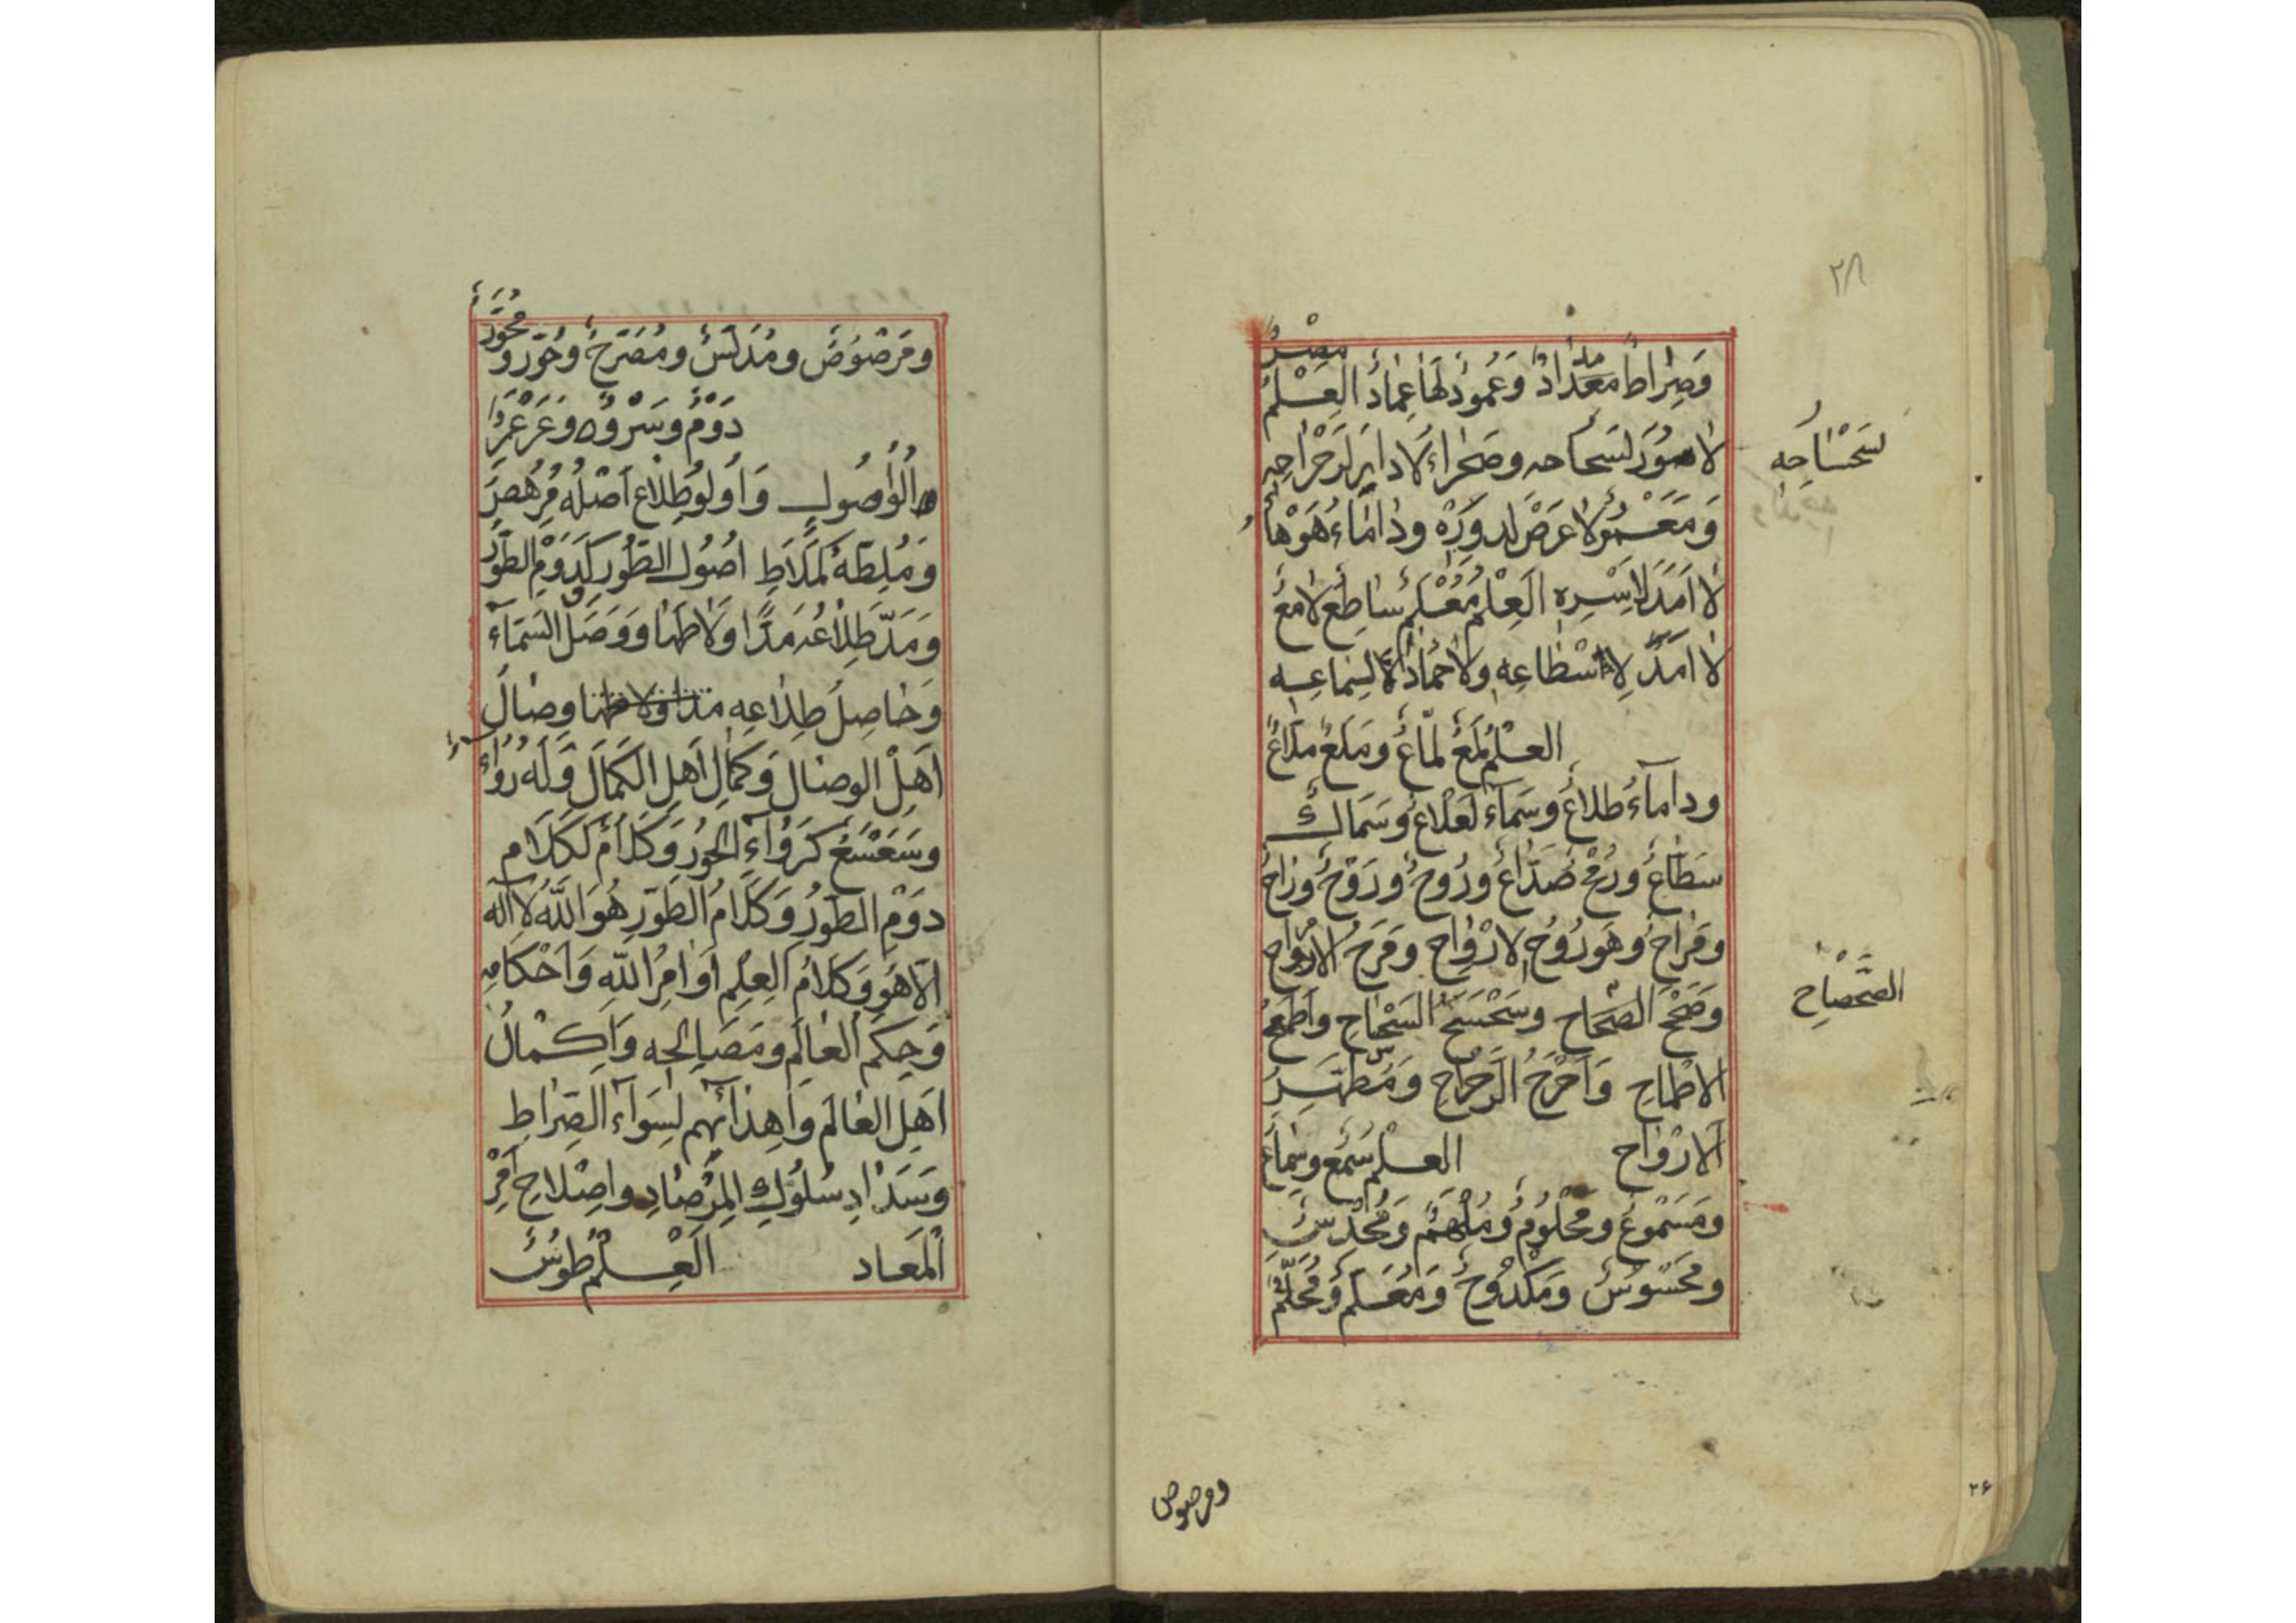 ٢٨
وَصِرَاطٌ مَعَدٌّ مدادٌ وَعَمُودٌ لَهَا عِمَادٌ العِلْمُ مِصْرٌ
لا سُورَ لسَحَاحه وصَحْرَاءُ لا دايرَ لرَحْرَاحِهِ
سَحْسَاحِهِ
وَمَعْمُو لا عَرْضَ لدورِهِ ودَامَاءُ هَوْهَاءُ
لا اَمَدَ لِاَسْرِهِ العِلْمُ مُعْلَمٌ سَاطِعٌ لامعٌ
لا اَمَدَ لِاسْطَاعِهِ ولا حَمَادَ لِلِمَاعِهِ
العِلْمُ لَمْعٌ لَمَّاعٌ ومَلْعٌ مَلَّاعٌ
ودامَآءُ طلاعٌ وسَمَآءُ لَعْلاعٌ وسَمَاكٌ
سَطَّاعٌ ورُمْحٌ صَدَّاعٌ ورُوحٌ ورَوْحٌ ورَاحٌ
ومَرَاحٌ وهو رُوحُ الارْوَاحِ ومَرَحُ الارواح
وَصَحَّ الصَّحَاحِ وسَحْسَحَ السَّحَّاحِ واَطْمَحُ
الصَّحْصَاحِ
الاطْمَاحِ وَاَحْرَحُ الرَّحْرَاحِ ومُطَهِّرُ
الارْوَاحِ العِلْمُ سَمْعٌ وسَمَاعٌ
ومَسْمُوعٌ ومَحْلُومٌ ومُلْهَمٌ وَمَحْدُسٌ
ومَحْسُوسٌ ومَكْدُوحٌ ومُعَلَّمٌ ومُحَلَّمٌ
ومرصوص
٢٦
ومَرْصُوصٌ ومُدَلَّسٌ ومُصَرَّحٌ وحَوْرٌ ومُحَوَّرٌ
دَوْمٌ وسَرْوٌ وعَرْعَرٌ
الْوُصُولِ وَاُولُو طِلَاعٍ اَصْلُهُ مُرْهِصٌ
وَمُلِطَّهُ كَمَلَاطِ اُصُولِ الطُّورِ كَدَوْمِ الطَّوْرِ
وَمَدَّ طِلَاعُهُ مَدًّا وَلَاطَهَا ووَصَلَ السَّمَآءَ
وَحَاصِلُ طِلَاعِهِ مدا ولاطها وِصَالُ
اَهْلِ الوِصَالِ وكَمَالُ اَهْلِ الكَمَالِ وَلَهُ رُوَاءٌ
وسَعْسَعٌ كَرُوَآءِ الحُورِ وَكَلَامٌ كَكَلَامِ
دَوْمِ الطَّوْرِ وَكَلَامُ الطَّوْرِ هُوَ اللّٰهُ لَا اِلٰهَ
اِلَّا هُوَ وَكَلَامُ العِلْمِ اَوَامِرُ اللّٰهِ وَاَحْكَامِهِ
وَحِكَمُ العَالَمِ ومَصَالِحِهِ وَاِكْمَالُ
اَهْلِ العَالَمِ واِهْدَآئِهِمْ لِسَوَآءِ الصِّرَاطِ
وسَدَادِ سُلُوكِ المِرْصَادِ واِصْلَاحِ اَمْرِ
المَعَادِ العِلْمُ طُوسٌ